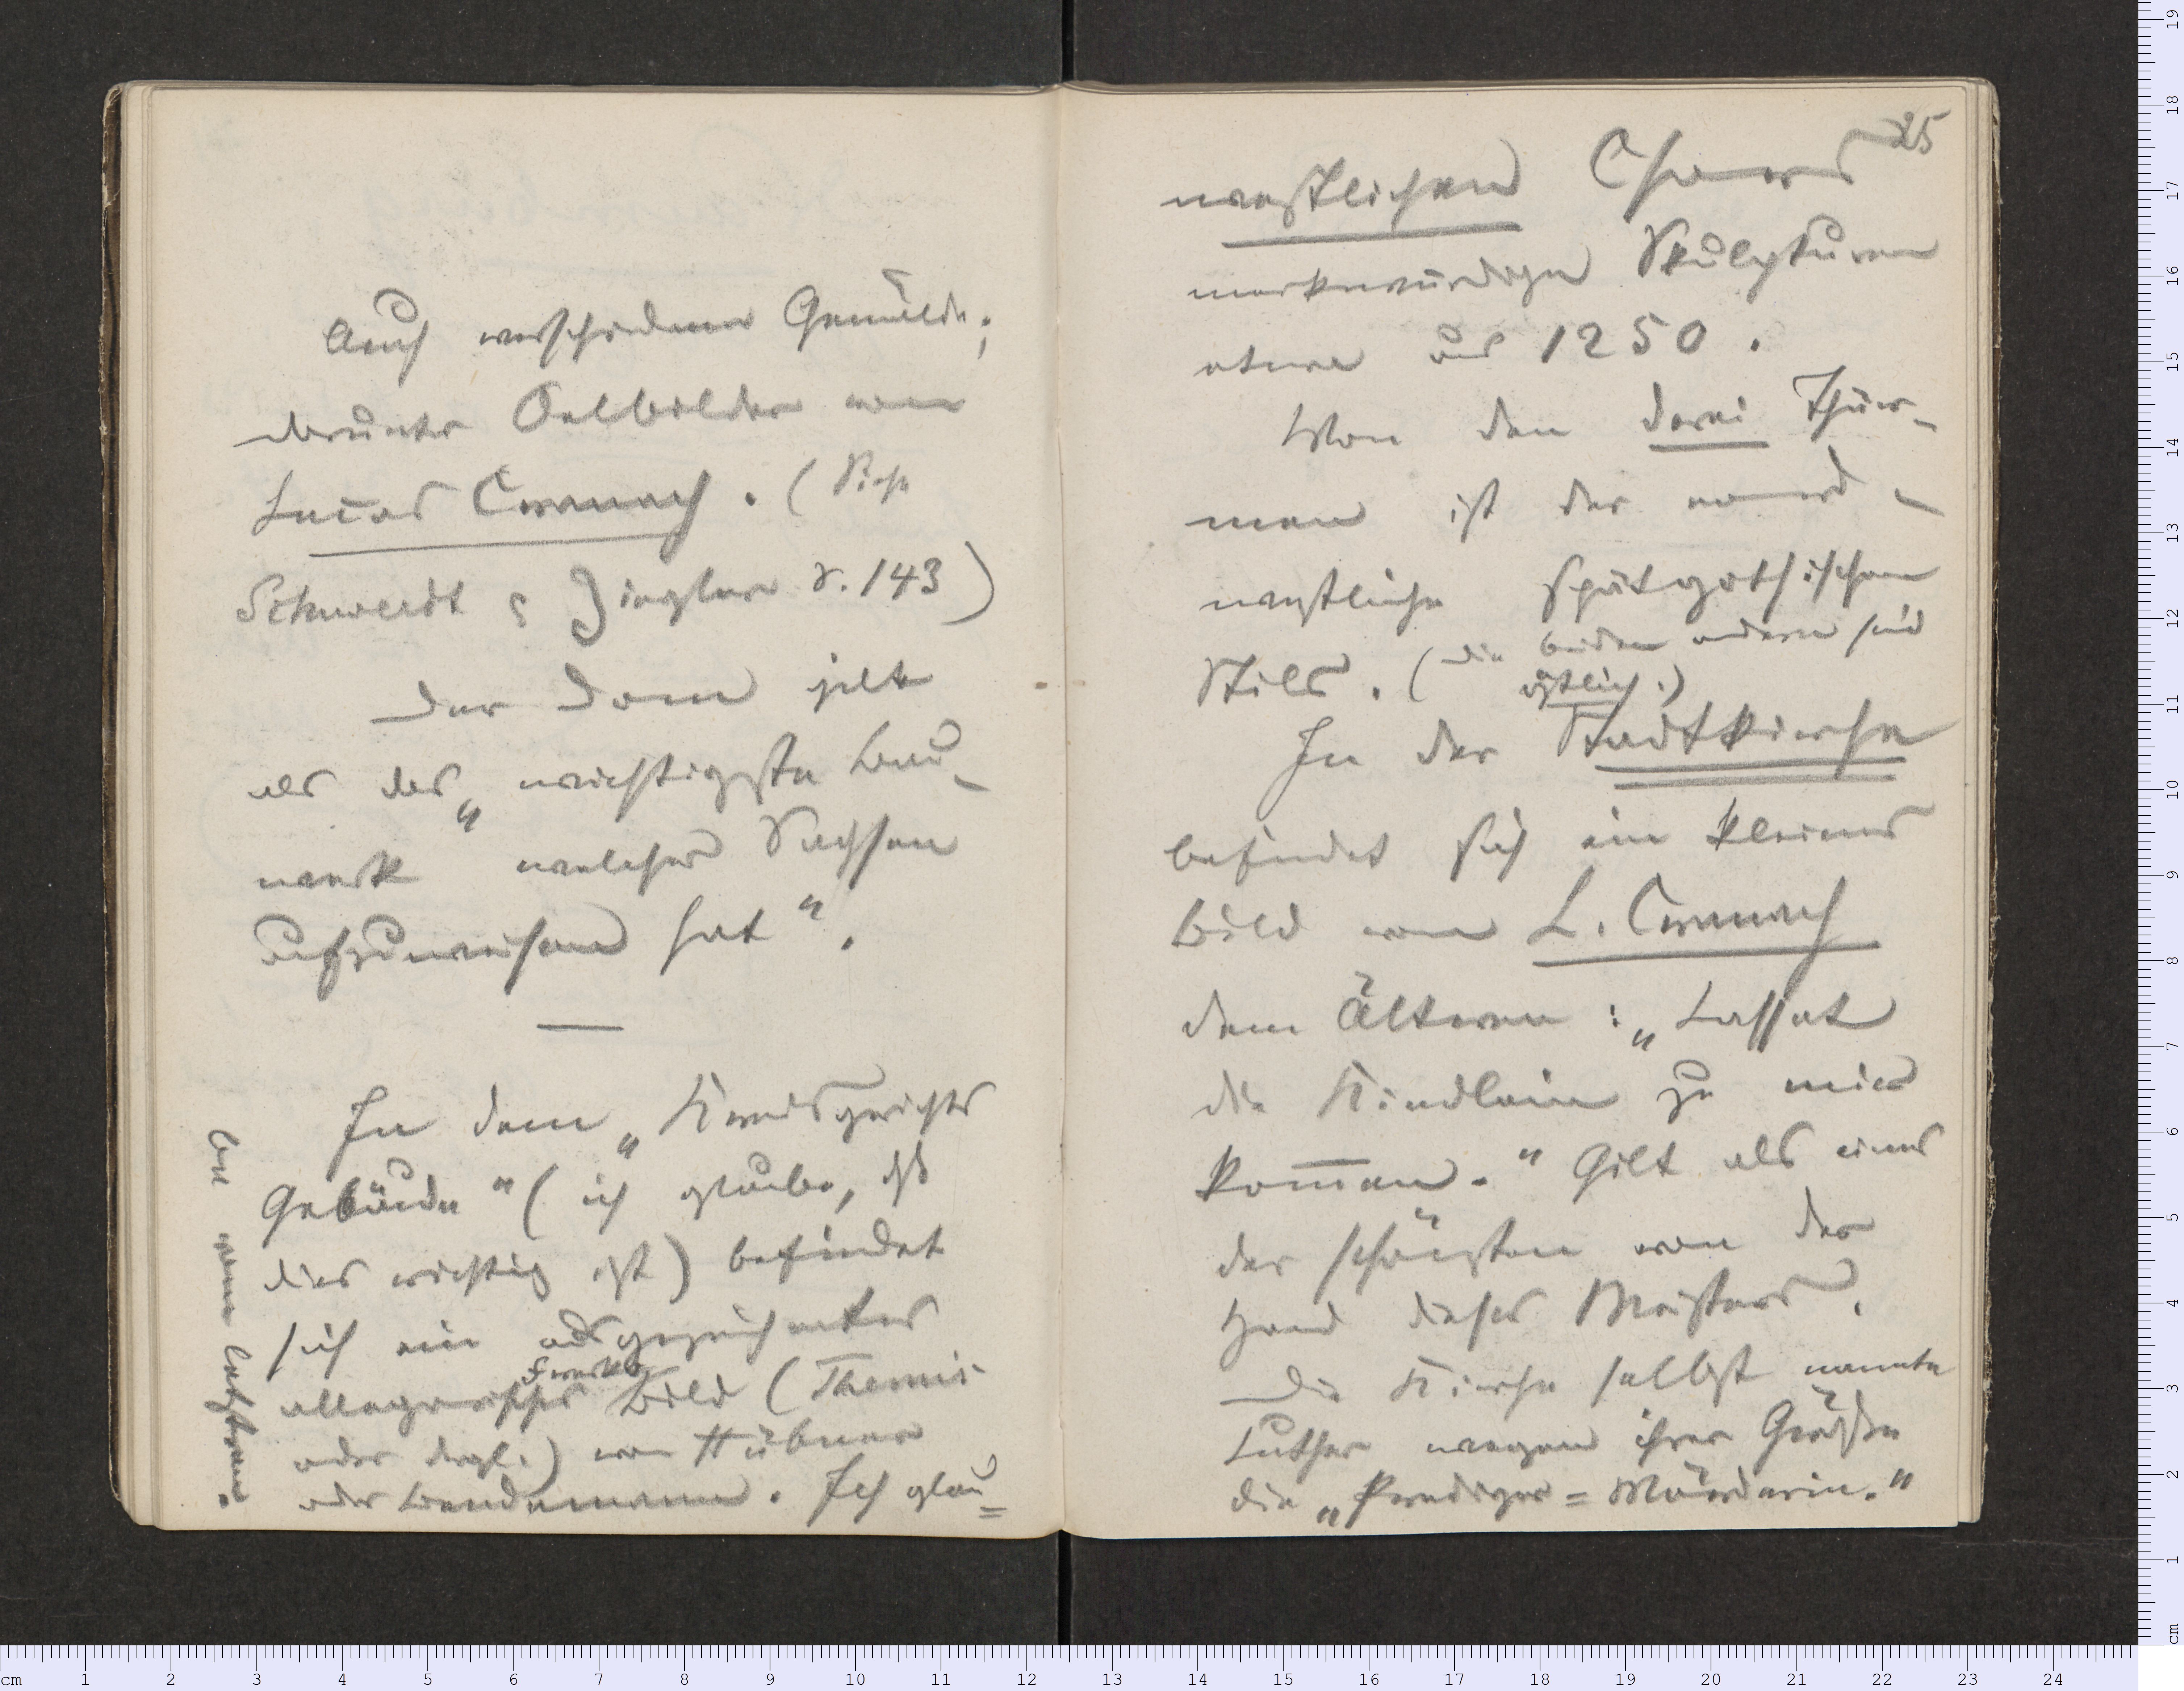 Auch verschiedene Gemälde;
darunter Oelbilder von
Lucas Cranach. (Siehe
Schmeidt &
Ziegler S. 143)
Der Dom gilt
als das „wichtigste Bau-
werk welches Sachsen
aufzuweisen hat“.
In dem „Kreisgerichts
Gebäude“ (ich glaube, ob
dies richtig ist) befindet
sich ein ausgezeichnetes
Fresko
allegorisches Bild (Themis
oder dergl.) von Hübner
oder Bendemann. Ich glau=
be vom letztren.
25
westlichen Chores
merkwürdige Skulpturen
etwa aus 1250.
Von den drei Thür-
men ist der nord-
westliche spätgothischen
Stils. (die beiden andern sind
östlich.)
In der Stadtkirche
befindet sich ein kleines
Bild von L. Cranach
dem Älteren: „Lasset
die Kindlein zu mir
kom̅en.“ Gilt als eines
der schönsten von der
Hand dieses Meisters.
Die Kirche selbst nannte
Luther wegen ihrer Größe
die „Prediger=Mörderin.“